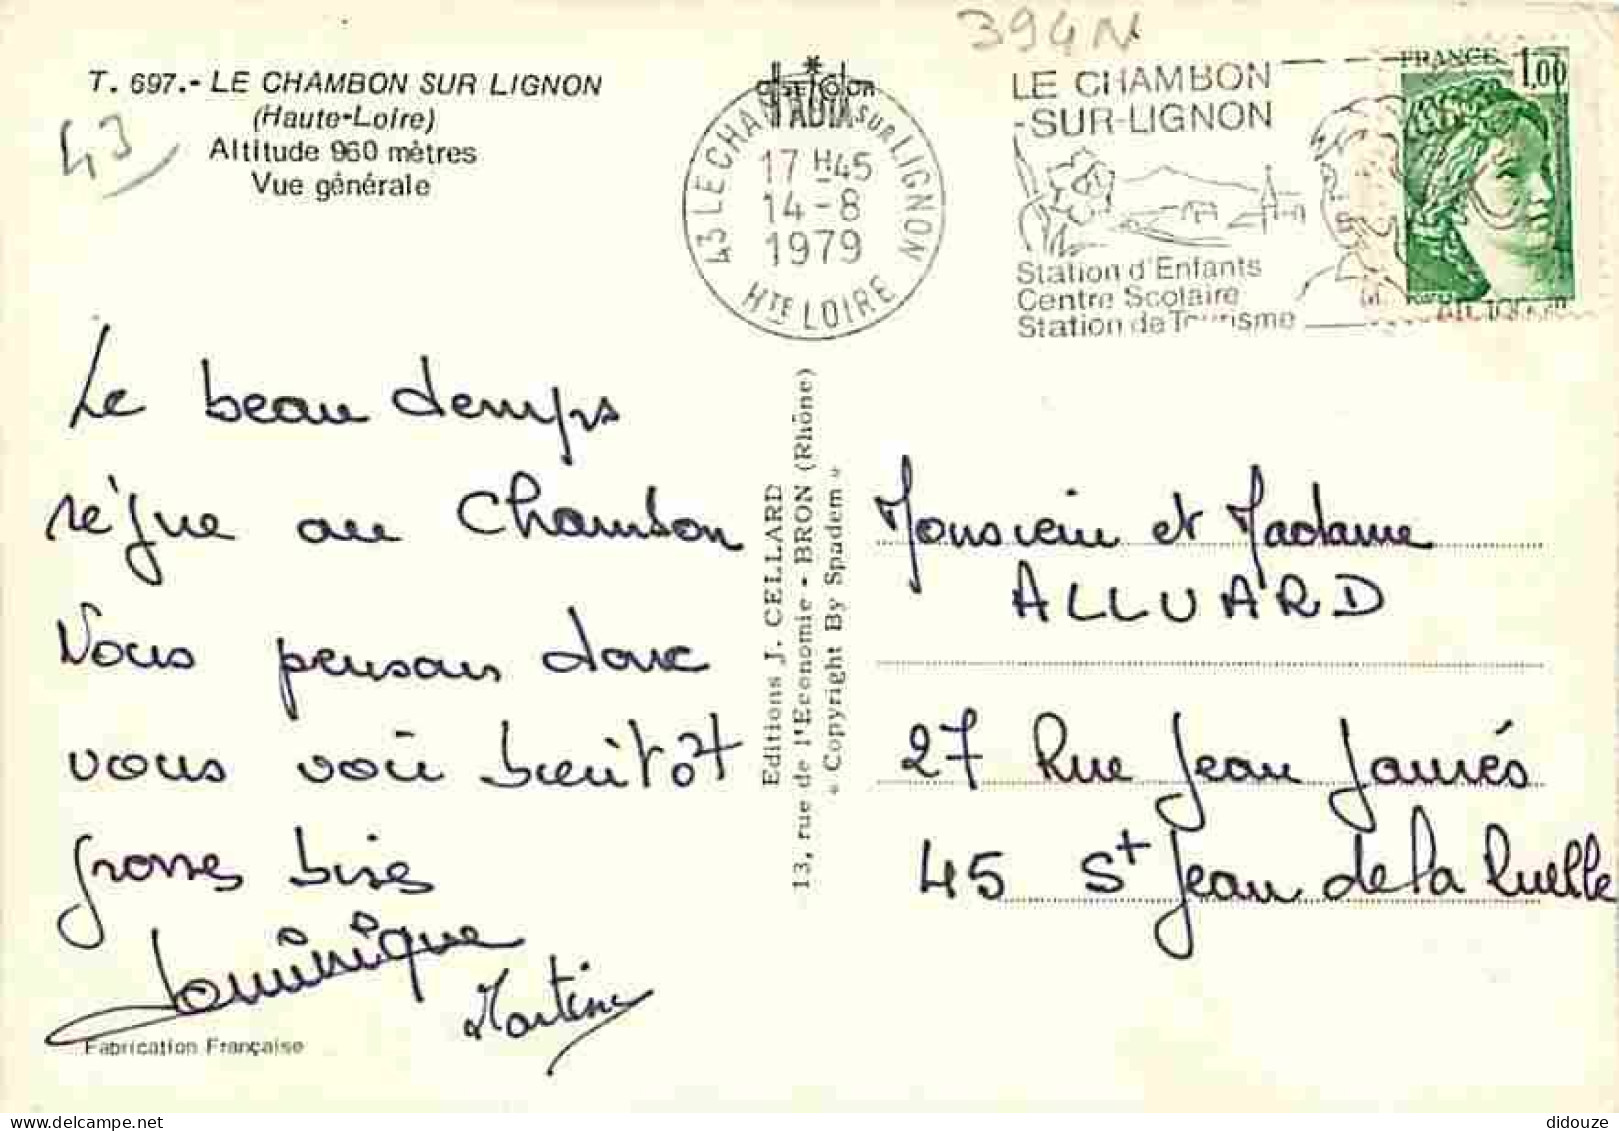 394N
T. 697.- LE CHAMBON SUR LIGNON
(Haute-Loire)
Altitude 960 mètres
Vue générale
43
43 LE CHAMBON SUR LIGNON
17 H 45
14-8
1979
HTE LOIRE
LE CHAMBON
-SUR-LIGNON
Station d'Enfants
Centre Scolaire
Station de Tourisme
FRANCE 1,00
Le beau temps
règne au Chambon
Nous pensons donc
vous voir bientôt
grosses bises
Dominique
Martine
Fabrication Française
Editions J. CELLARD
13, rue de l'Economie - BRON (Rhône)
« Copyright By Spadem »
Monsieur et Madame
ALLUARD
27 Rue Jean Jaurés
45 St Jean de la Ruelle
didouze